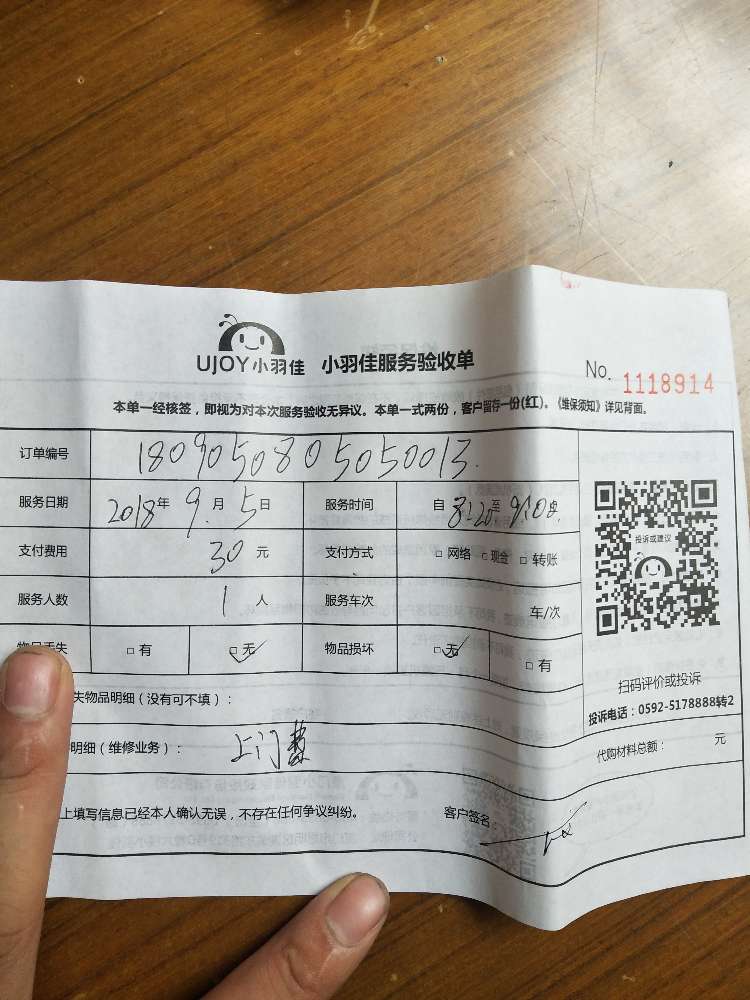 UJOY小羽佳 小羽佳服务验收单
No. 1118914
本单一经核签，即视为对本次服务验收无异议。本单一式两份，客户留存一份(红)。《维保须知》详见背面。
订单编号 1809050805050013
服务日期 2018年 9月 5日 服务时间 自 8:20至
支付费用 30元 支付方式 □ 网络 □ 现金 □ 转账
服务人数 1人 服务车次 车/次
□ 有 □ 无 物品损坏 □ 无 □ 有
失物品明细（没有可不填）：
明细（维修业务）： 上门费
上填写信息已经本人确认无误，不存在任何争议纠纷。 客户签名：
投诉或建议
扫码评价或投诉
投诉电话：0592-5178888转2
代购材料总额： 元